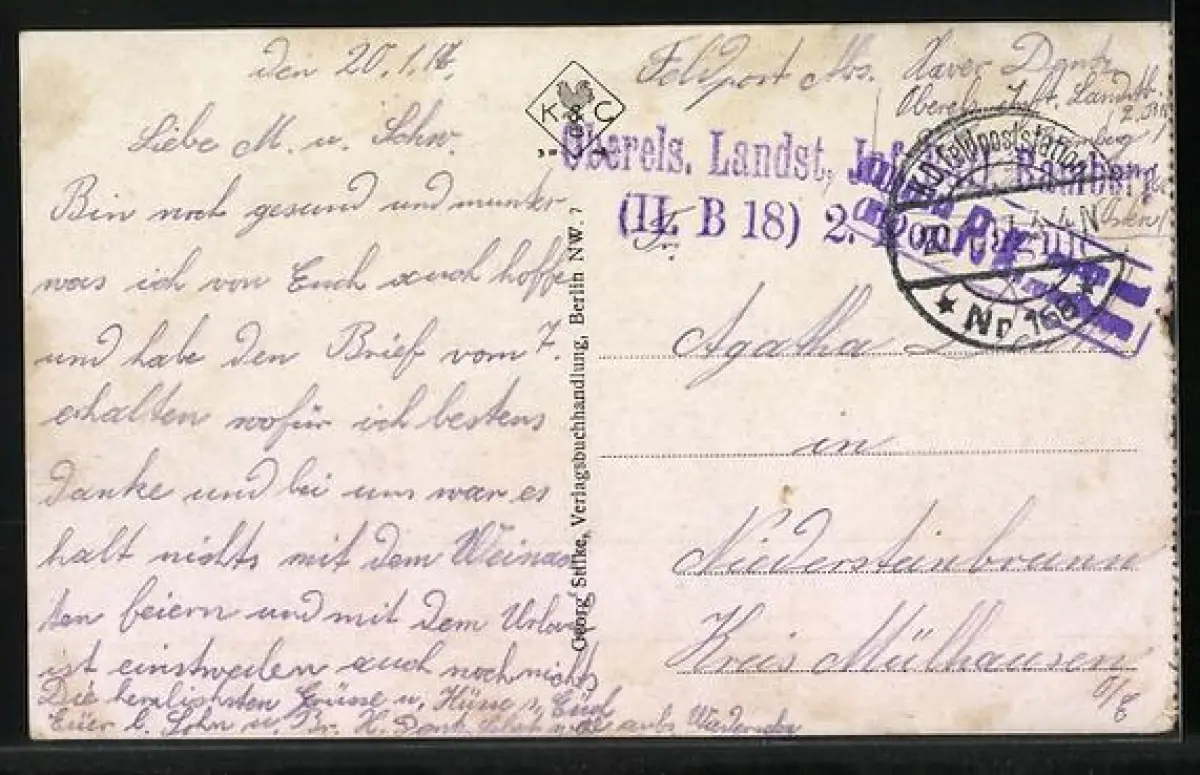 den 20.1.17.
Liebe M. u. Schw.
Bin noch gesund und munter
was ich von Euch auch hoffe
und habe den Brief vom 7.
erhalten wofür ich bestens
Danke und bei uns war es
halt nichts mit dem Weinach
ten feiern und mit dem Urlaub
ist einstweilen auch noch nichts
Die herzlichsten Grüsse u. Küsse s. Eud
Euer l. Sohn u. Br. X. auf Wiedersehn
K C
Georg Stilke, Verlagsbuchhandlung, Berlin NW. 7
Feldpost Abs. Xaver
Oberels. Inft. Landst.
Oberels. Landst. Inf. Bamberg
(II. B 18) 2.
K.D. Feldpoststation
Nr. 168
Fr.
Agatha
in
Niedersteinbrunn
Kreis Mülhausen